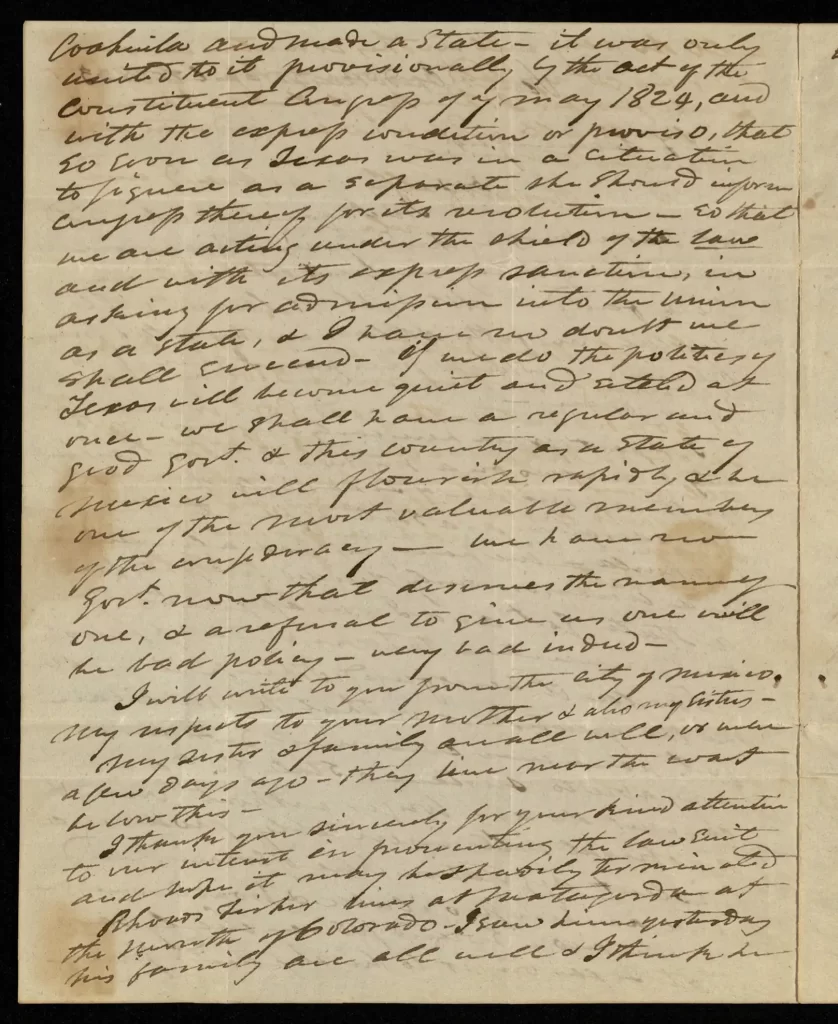 Coahuila and made a State - it was only
united to it provisionally by the act of the
Constituent Congress of 7 May 1824, and
with the express condition or proviso, that
so soon as Texas was in a cituation
to figuere as a separate she should inform
Congress thereof for its resolution - so that
we are acting under the shield of the law
and with its express sanction, in
asking for admission into the Union
as a state, & I have no doubt we
shall succeed - if we do the politics of
Texas will become quiet and seteled at
once - we shall have a regular and
good Govt. & this country as a State of
Mexico will flourish rapidly & be
one of the most valuable members
of the confederacy - we have no
Govt. now that deserves the name of
one, & a refusal to give us one will
be bad policy - very bad indeed -
I will write to you from the City of Mexico.
My respects to your Mother & also my Sisters -
My sister & family are all well, or were
a few days ago - they live near the coast
below this -
I thank you sincerely for your kind attention
to our interest in prosecuting the law suit
and hope it may be speedily terminated
Rhoads Fisher lives at Matagorda at
the mouth of Colorado - I saw him yesterday
his family are all well & I think he